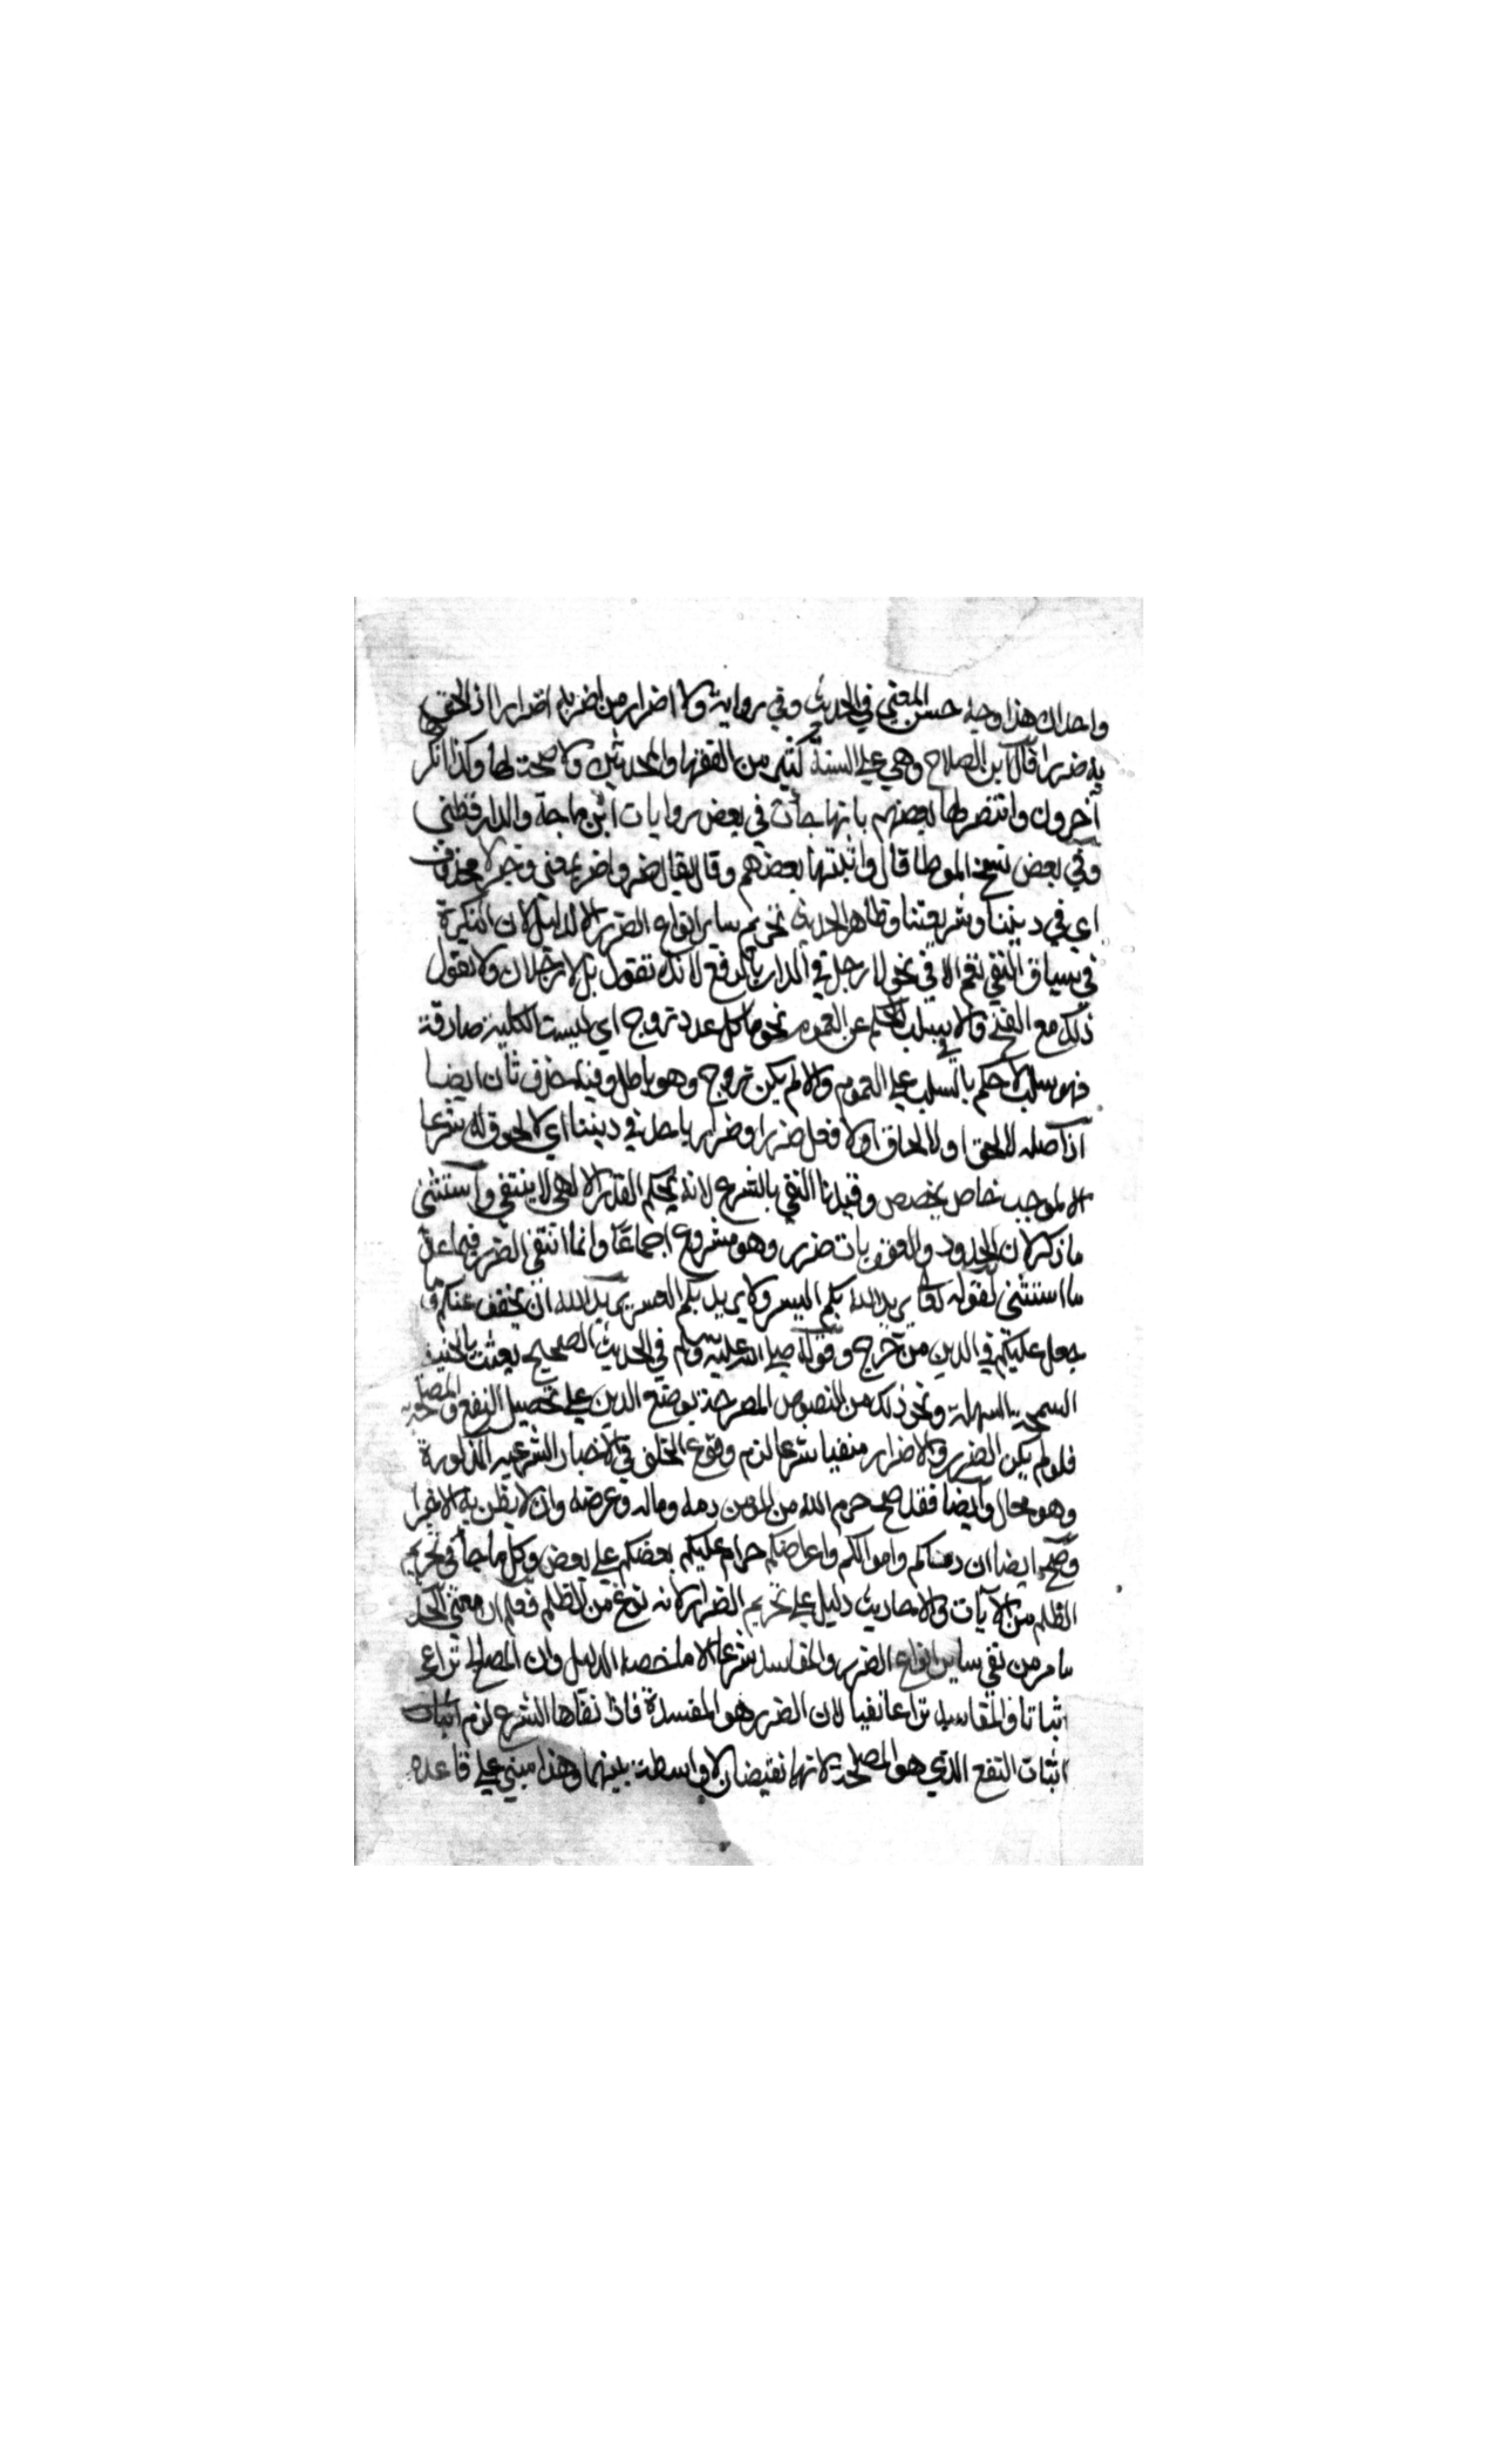 واحداك هذا وجيه حسن المعنى في الحديث وفي رواية ولا اضرار من اضر به اضرارا اذ الحق
به ضررا قال ابن الصلاح وهي على السنة كثير من الفقها والمحدثين ولا صحت لها وكذا انكر
آخرون وانتصر لها بعضهم بانها جأت في بعض روايات ابن ماجة والدارقطني
وفي بعض نسخ الموطا قال واثبتها بعضهم وقال يقال ضر واضر بمعنى وخبر لا محذوف
اي في ديننا وشريعتنا وظاهر الحديث تحريم ساير انواع الضرر الا لدليل لان النكرة
في سياق النفي تعم الا في نحو لا رجل في الدار بالرفع لانك تقول بل لا رجلان ولا تقول
ذلك مع الفتح والا بسلب الحكم عن العموم نحو ما كل عدد تزوج اي ليست الكلية صادقة
فهو سلب لا حكم بالسلب على العموم والا لم يكن تزوج وهو باطل وفيه حذف ثان ايضا
اذ اصله لا لحق او لا الحاق او لا فعل ضرر او ضرار باحد في ديننا اي لا لحوق له شرعا
الا لموجب خاص بخصص وقيدنا النفي بالشرع لانه بحكم القدر الالهي لا ينتفي واستثنى
ما ذكر لان الحدود والعقوبات ضرر وهو مشروع اجماعا وانما انتفى الضرر فيما عدا
ما استثني لقوله تعا يريد الله بكم اليسر ولا يريد بكم العسر يريد الله ان يخفف عنكم وما
جعل عليكم في الدين من حرج وقوله صلى الله عليه وسلم في الحديث الصحيح بعثت بالحنيفية
السمحة السهلة ونحو ذلك من النصوص المصرحة بوضع الدين على تحصيل النفع والمصلحة
فلو لم يكن الضرر والاضرار منفيا شرعا لزم وقوع الخلف في الاخبار الشرعيه المذكورة
وهو محال وايضا فقد صح حرم الله من المؤمن دمه وماله وعرضه وان لا يظن به الا خيرا
وصح ايضا ان دمماكم واموالكم واعراضكم حرام عليكم بعضكم على بعض وكل ما جا في تحريم
الظلم من الآيات والاحاديث دليل على تحريم الضرار لانه نوع من الظلم فعلم ان معنى الحد
ما مر من نفي ساير انواع الضرر والمفاسد شرعا الا ما خصه الدليل وان المصالح تراعى
اثباتا والمفاسد تراعا نفيا لان الضرر هو المفسدة فاذا نفاها الشرع لزم اثبات
اثبات النفع الذي هو المصلحة لانهما نقيضان لا واسطة بينهما وهذا مبني على قاعده